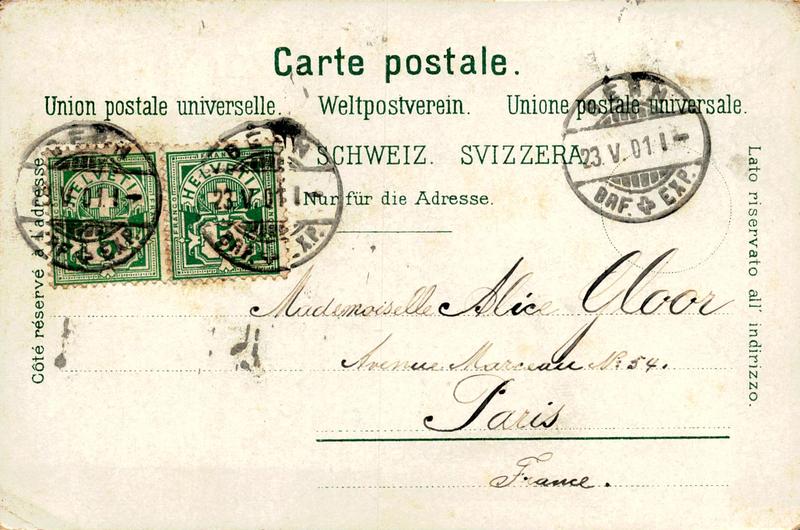 Carte postale.
Union postale universelle. Weltpostverein. Unione postale universale.
SCHWEIZ. SVIZZERA
Nur für die Adresse.
Côté réservé à l'adresse.
Lato riservato all' indirizzo.
HELVETIA
FRANCO
HELVETIA
FRANCO
BERN
23.V.01.I
BRF. EXP.
BERN
23.V.01.I
BRF. EXP.
Mademoiselle Alice Gloor
Avenue Marceau No 54.
Paris
France.